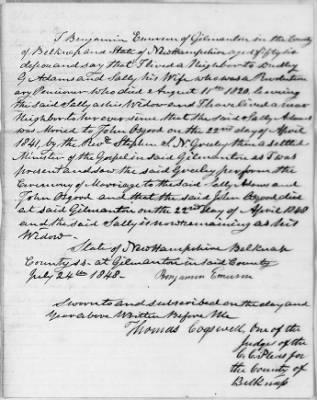 I Benjamin Emerson of Gilmanton in the County
of Belknap and State of New Hampshire aged fifty six
depose and say that I lived a Neighbor to Dudley
G Adams and Sally his Wife who was a Revolution
ary Pensioner who died August 11th 1820, leaving
the said Sally as his Widow and I have lived a near
Neighbor to her ever since that the said Sally Adams
was Maried to John Osgood on the 22nd day of April
1841, by the Revd. Stephen S. N. Greely then a settled
Minister of the Gospel in said Gilmanton as I was
present and saw the said Greeley perform the
Ceremony of Marriage to the said Sally Adams and
John Osgood and that the said John Osgood died
at said Gilmanton on the 22nd Day of April 1848
and the said Sally is now remaining as his
Widow—
State of New Hampshire Belknap
County ss at Gilmanton in said County
July 24th 1848— Benjamin Emerson
Sworn to and subscribed on the day and
Year above Written Before Me
Thomas Cogswell, One of the
Judges of the
C. C. Pleas for
the County of
Belknap